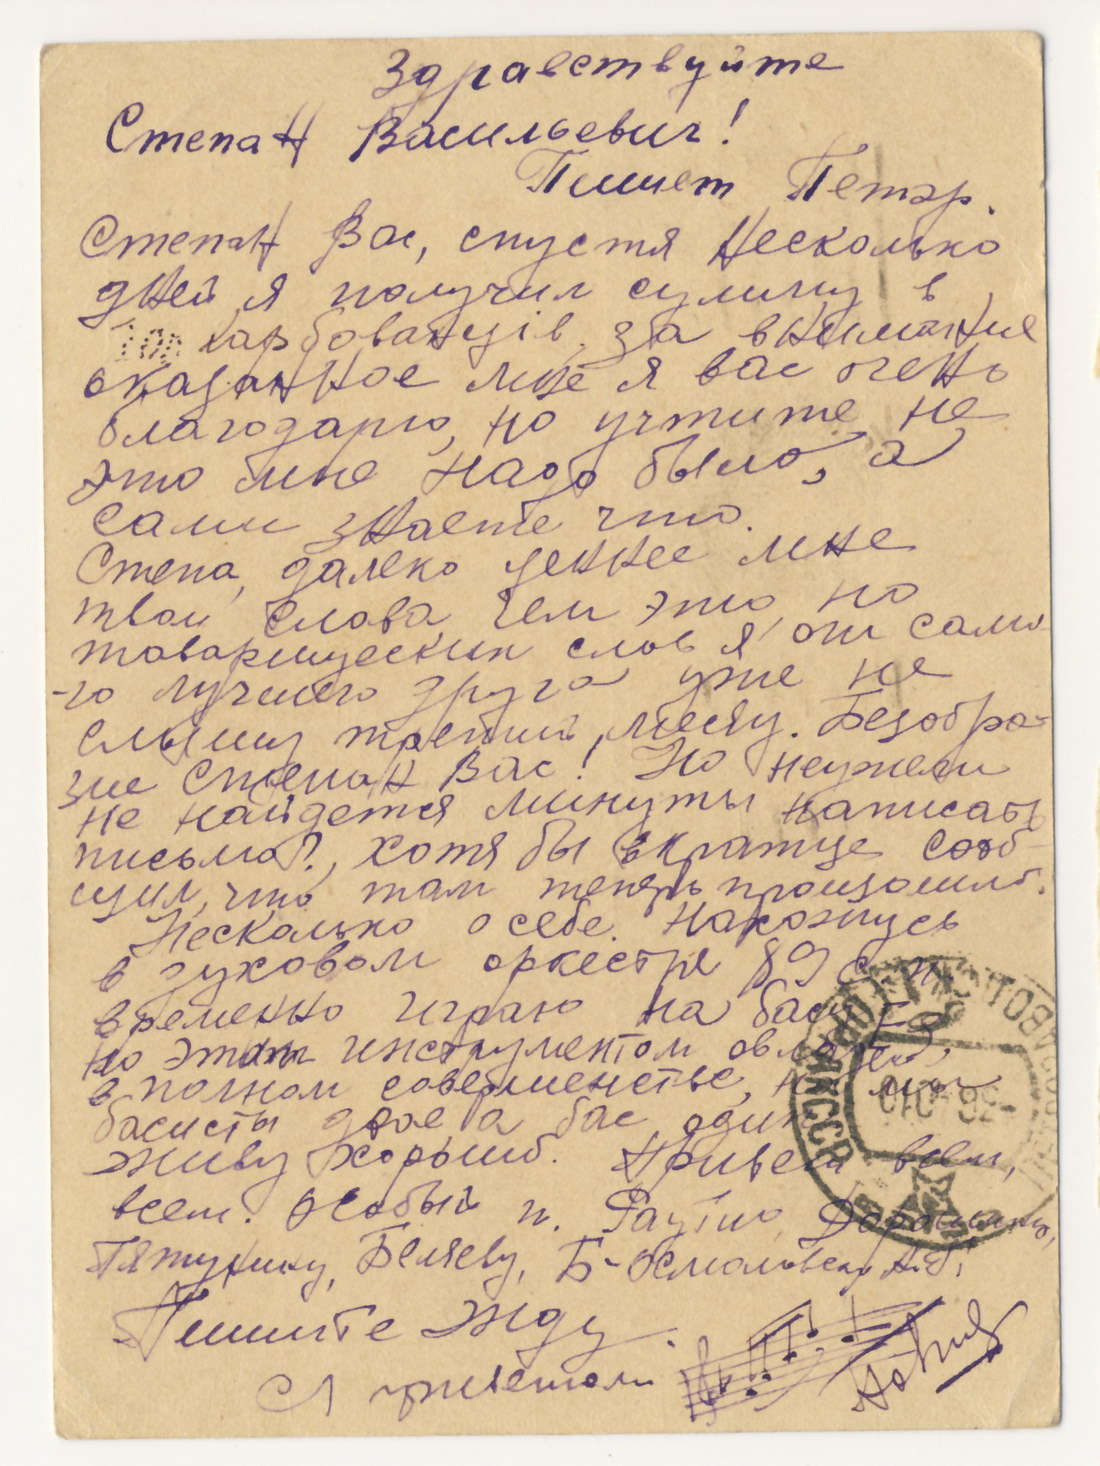 Здравствуйте
Степан Васильевич!
Пишет Петэр.
Степан Вас, спустя несколько
дней я получил сумму в
100 карбованців, за внимание
оказанное мне я вас очень
благодарю, но учтите не
это мне надо было, а
сами знаете что.
Степа, далеко ценнее мне
твои слова чем это, но
товарищеских слов я от само
-го лучшего друга уже не
слышу третий месяц. Безобра-
зие Степан Вас! Но неужели
не найдется минуты написать
письмо?, хотя бы вкратце сооб-
щил, что там теперь произошло.
Несколько о себе. Нахожусь
в духовом оркестре 89
временно играю на басу
но этим инструментом овладел
в полном совершенстве,
басисты двое а бас один
Живу хорошо. Привет всем,
всем. Особый п. Раутио,
Пятунину, Беляеву, Б-Осмоловск
Пишите Жду.
С приветом